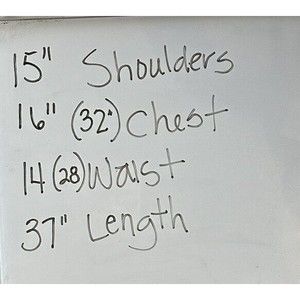 15" Shoulders
16" (32") Chest
14 (28) Waist
37" Length